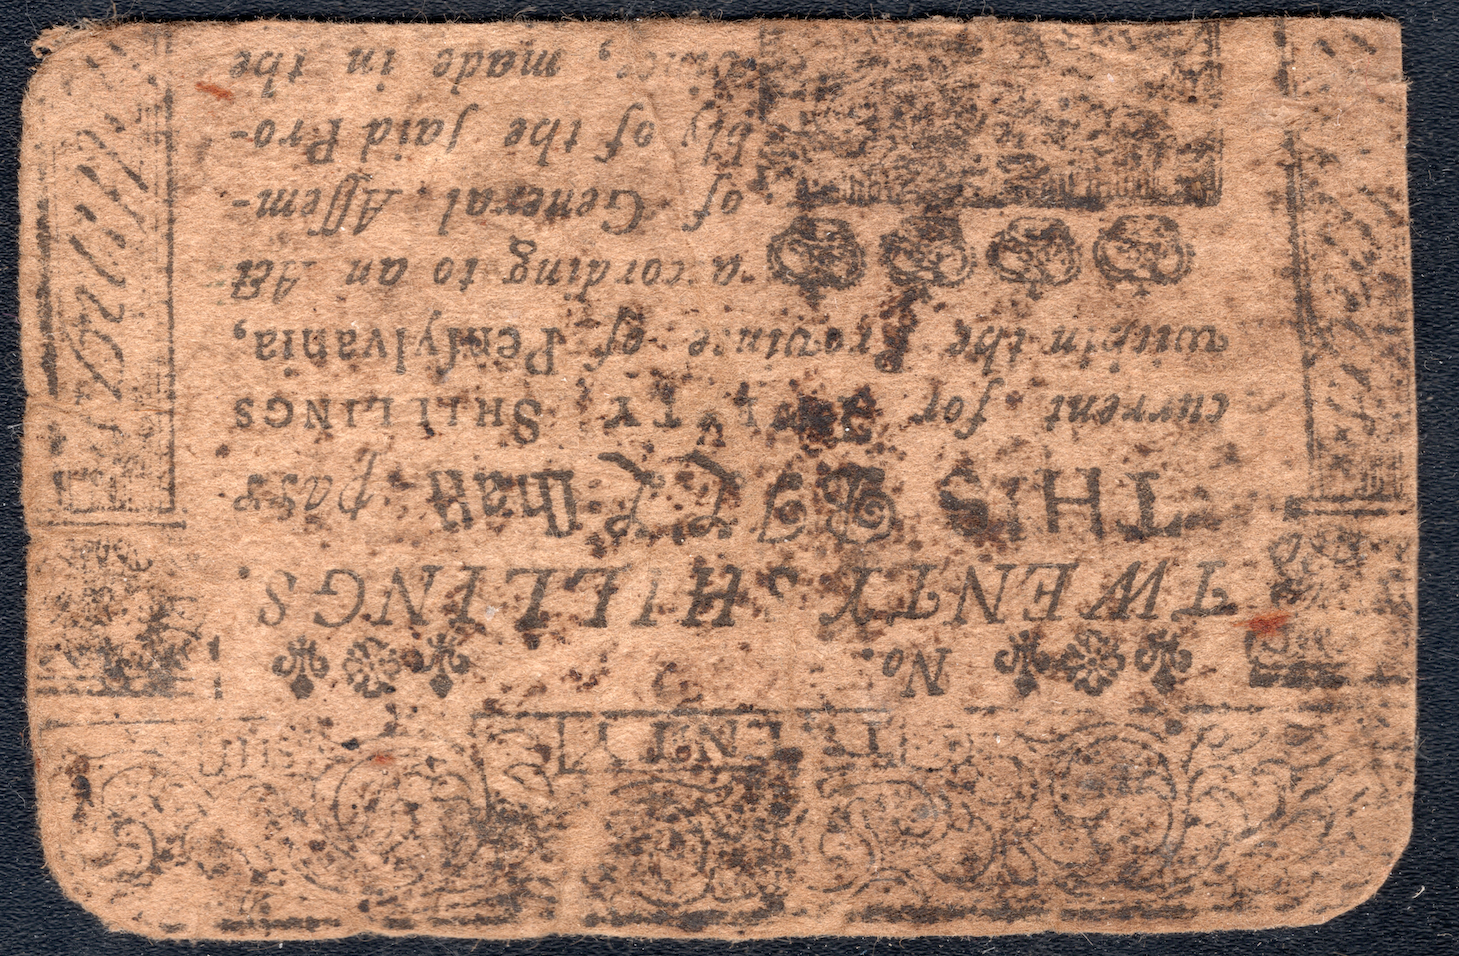 TWENTY
No.
TWENTY SHILLINGS.
THIS BILL ſhall paſs
current for TWENTY SHILLINGS
within the Province of Penſylvania,
according to an Act
of General Aſſem-
bly of the ſaid Pro-
vince, made in the